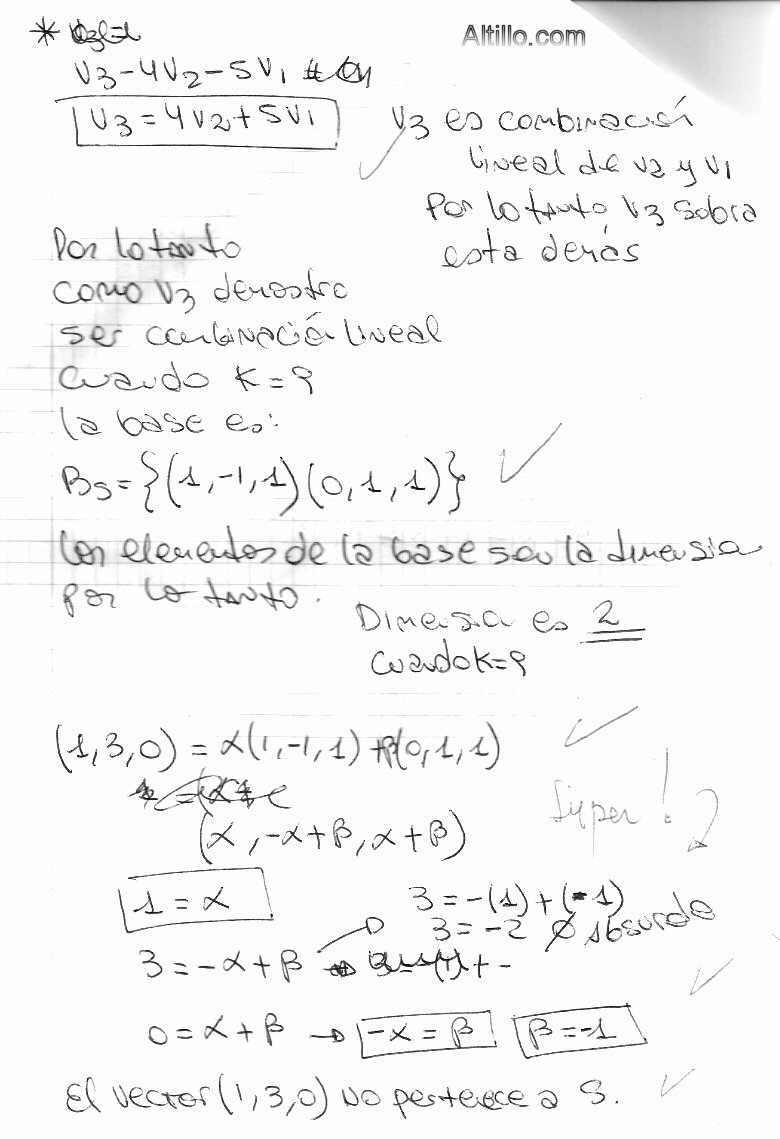 Altillo.com
*
V3-4V2-5V1
V3=4V2+5V1
V3 es combinación
lineal de V2 y V1
Por lo tanto V3 sobra
esta demás
Por lo tanto
como V3 demostro
ser combinación lineal
Cuando K=9
la base es:
Bs={(1,-1,1)(0,1,1)}
Los elementos de la base son la dimensia
por lo tanto.
Dimensia es 2
Cuando K=9
(1,3,0)=α(1,-1,1)+β(0,1,1)
(α,-α+β,α+β)
Super!
1=α
3=-(1)+(-1)
3=-2 Absurdo
3=-α+β
0=α+β → -α=β β=-1
El vector (1,3,0) no pertenece a S.